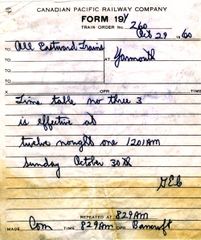 CANADIAN PACIFIC RAILWAY COMPANY
FORM 19Y
TRAIN ORDER No. 260
Oct 29 1960
To All Eastward Trains
At Yarmouth
OPR. TIME
Time table no three 3
is effective at
twelve nought one 1201 AM
Sunday October 30th
REPEATED AT 829AM
MADE Com TIME 829AM OPR. Bancroft